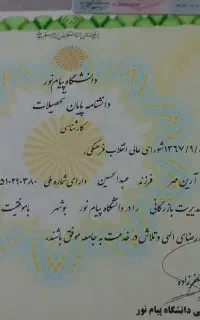 دانشگاه پیام نور
دانشنامه پایان تحصیلات
کارشناسی
۱۳۶۷/۹/ شورای عالی انقلاب فرهنگی،
آرین مهر فرزند عبدالحسین دارای شماره ملی ۵۱۰۲۹۰۳۸۰
مدیریت بازرگانی را در دانشگاه پیام نور بوشهر با موفقیت
رضای الهی و تلاش در خدمت به جامعه موفق باشند.
دانشگاه پیام نور